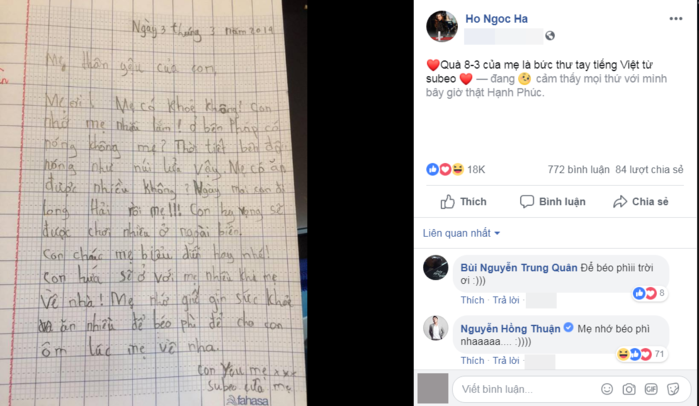 Ngày 3 tháng 3 năm 2019
Mẹ thân yêu của con,
Mẹ ơi. Mẹ có khoẻ không! Con
nhớ mẹ nhiều lắm! ở bên Pháp có
nóng không mẹ? Thời tiết bên đây
nóng như núi lửa vậy. Mẹ có ăn
được nhiều không? Ngày mai con đi
Long Hải rồi mẹ!!! Con hy vọng sẽ
được chơi nhiều ở ngoài biển.
Con chúc mẹ biểu diễn hay nhé!
Con hứa sẽ ở với mẹ nhiều khi mẹ
về nhà! Mẹ nhớ giữ gìn sức khoẻ
ăn nhiều để béo phì để cho con
ôm lúc mẹ về nha.
con yêu mẹ xxx
subeo của mẹ
fahasa
Ho Ngoc Ha
❤️Quà 8-3 của mẹ là bức thư tay tiếng Việt từ
subeo ❤️ — đang 🥺 cảm thấy mọi thứ với mình
bây giờ thật Hạnh Phúc.
18K
772 bình luận 84 lượt chia sẻ
Thích Bình luận Chia sẻ
Liên quan nhất
Bùi Nguyễn Trung Quân Để béo phìii trời
ơi :)))
Thích · Trả lời
8
Nguyễn Hồng Thuận Mẹ nhớ béo phì
nhaaaaa.... :))))
Thích · Trả lời
71
Viết bình luận...
GIF